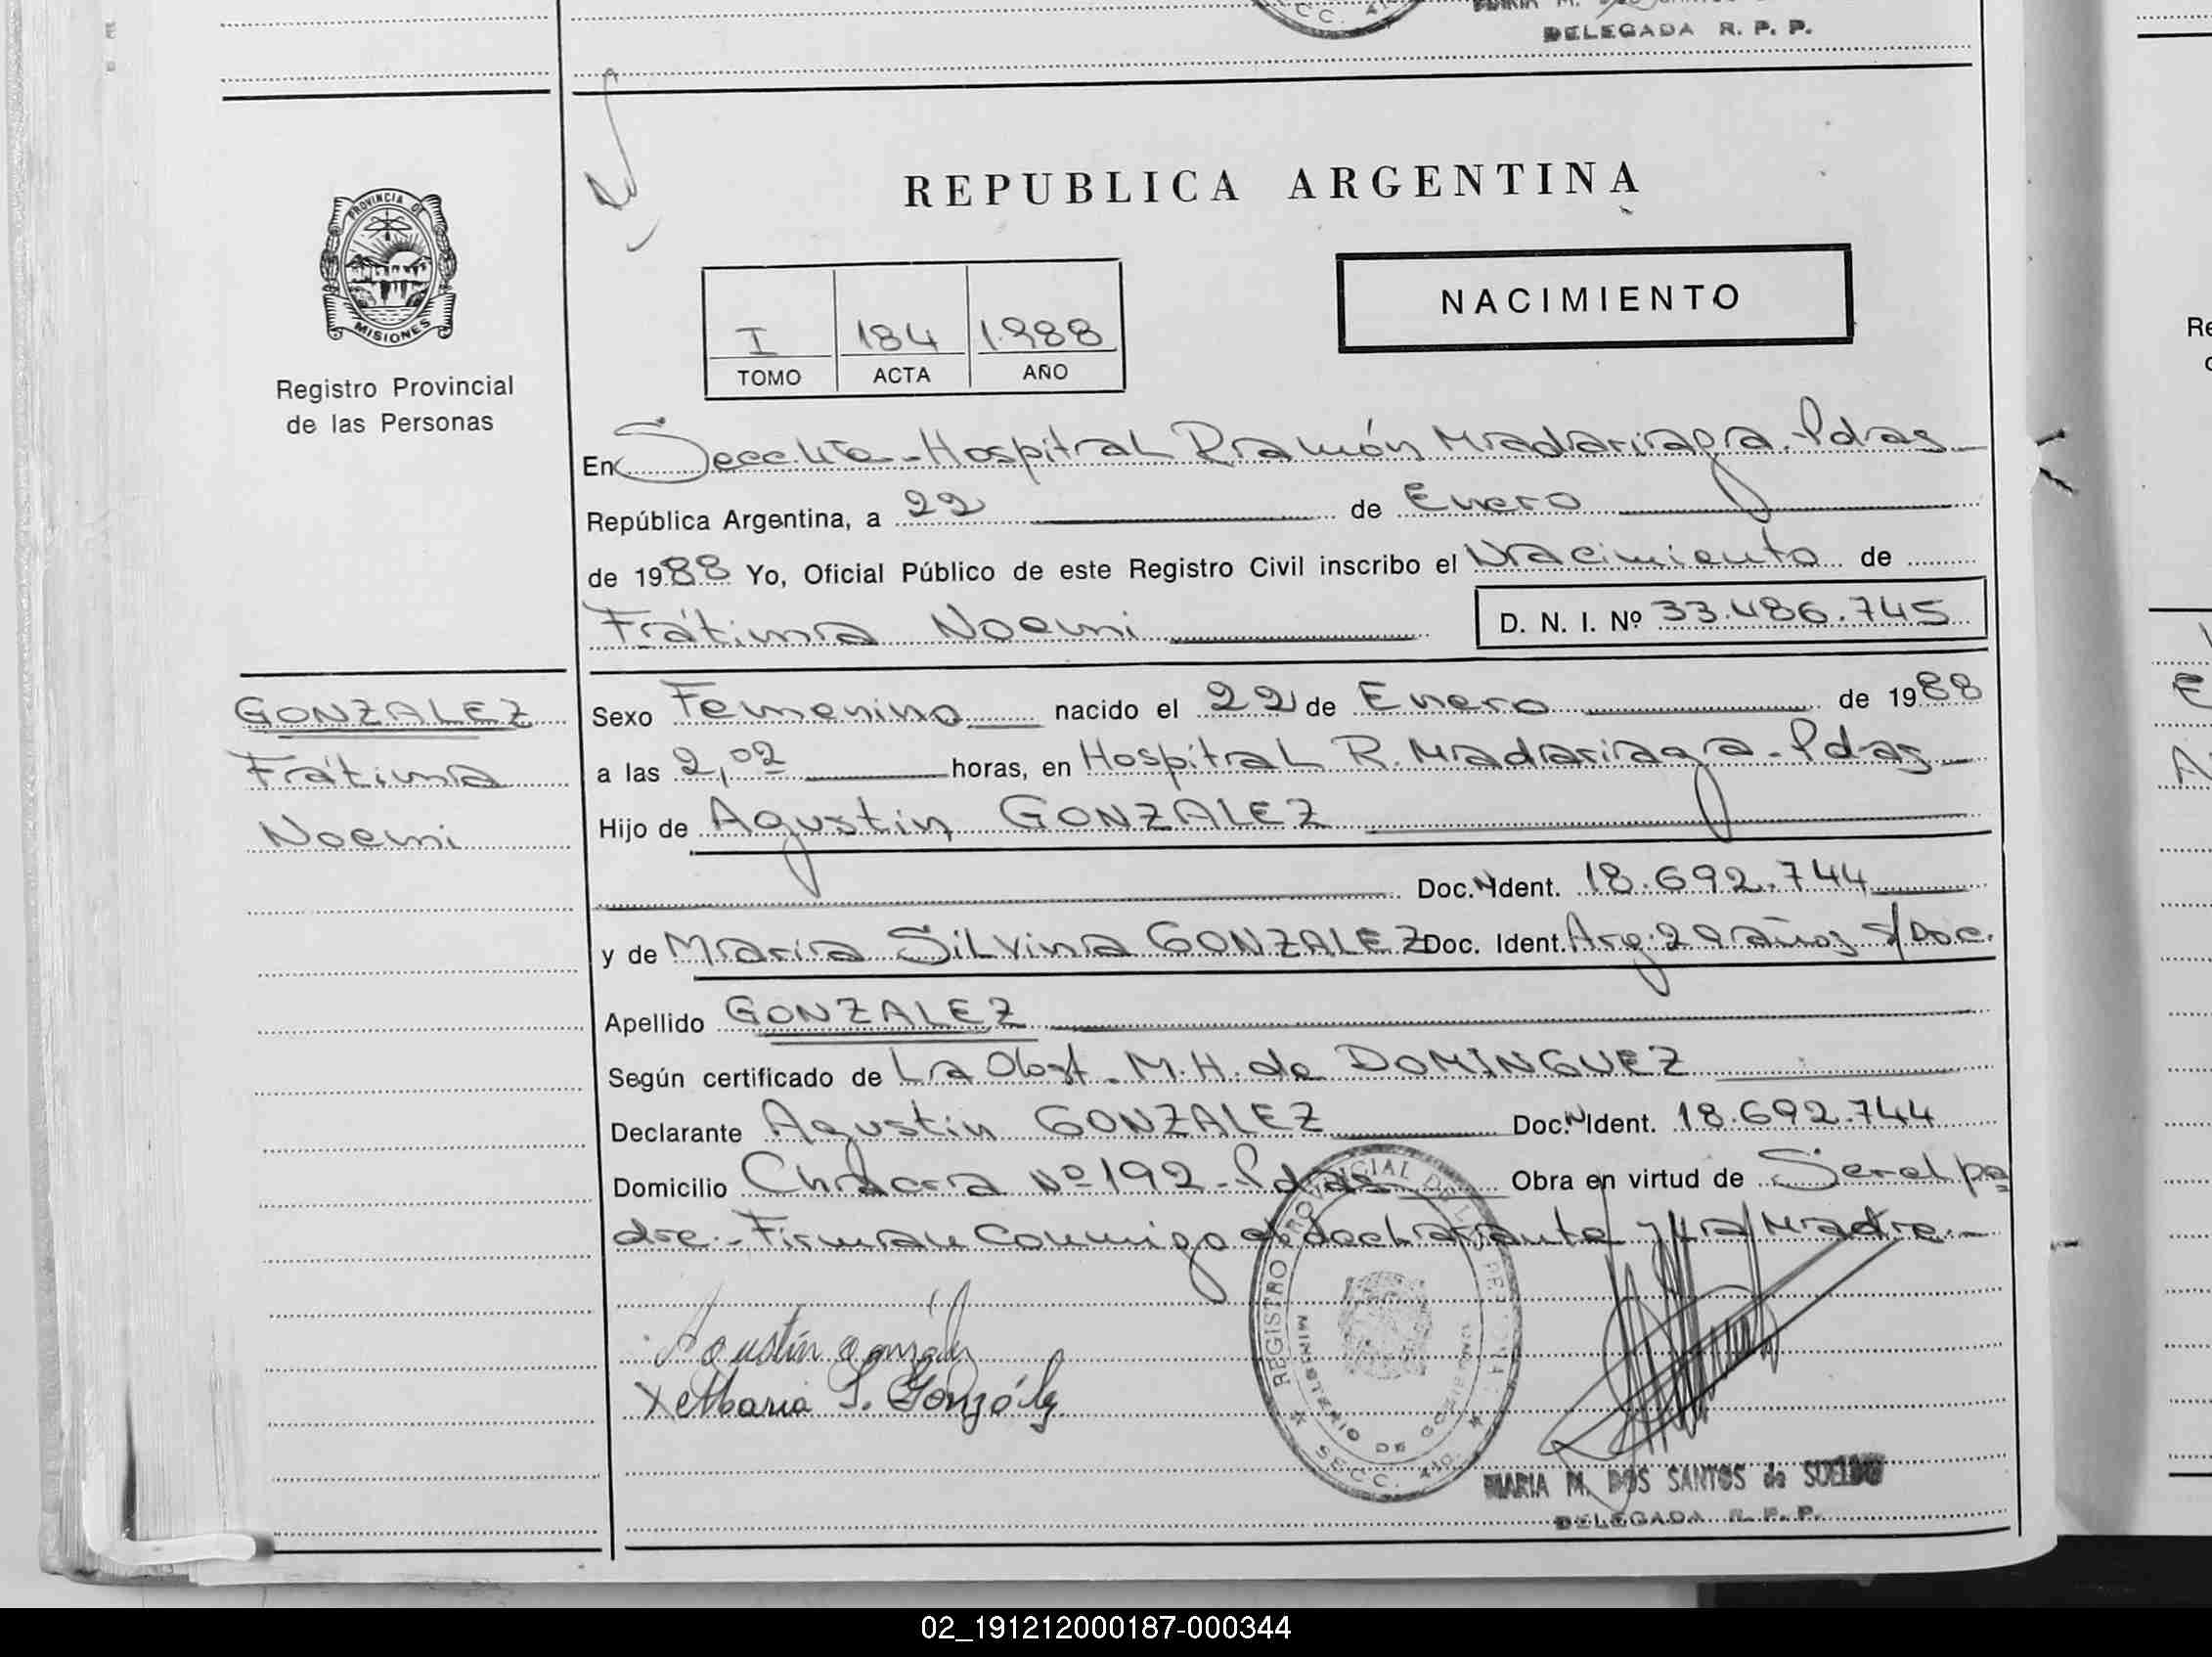 DELEGADA R. P. P.
REPUBLICA ARGENTINA
PROVINCIA DE
MISIONES
Registro Provincial
de las Personas
NACIMIENTO
I 184 1988
TOMO ACTA AÑO
En Secc. 4ta - Hospital Ramón Madariaga - Pdas
República Argentina, a 22 de Enero
de 1988 Yo, Oficial Público de este Registro Civil inscribo el Nacimiento de
Fátima Noemi D. N. I. Nº 33.486.745
GONZALEZ
Fátima
Noemi
Sexo Femenino nacido el 22 de Enero de 1988
a las 2,02 horas, en Hospital R. Madariaga - Pdas
Hijo de Agustin GONZALEZ
Doc. N Ident. 18.692.744
y de Maria Silvina GONZALEZ Doc. Ident. Arg. 20 años s/Doc.
Apellido GONZALEZ
Según certificado de La Obst. M.H. de DOMINGUEZ
Declarante Agustin GONZALEZ Doc. N Ident. 18.692.744
Domicilio Chacra Nº 192 - Pdas Obra en virtud de Ser el pa
dre. - Firman Conmigo el declarante y la Madre. -
Agustín gonzalez
X Maria S. González
REGISTRO PROVINCIAL DE LAS PERSONAS
MINISTERIO DE GOBIERNO
SECC. 4ta.
MARIA M. DOS SANTOS de SUELDO
DELEGADA R. P. P.
02_191212000187-000344